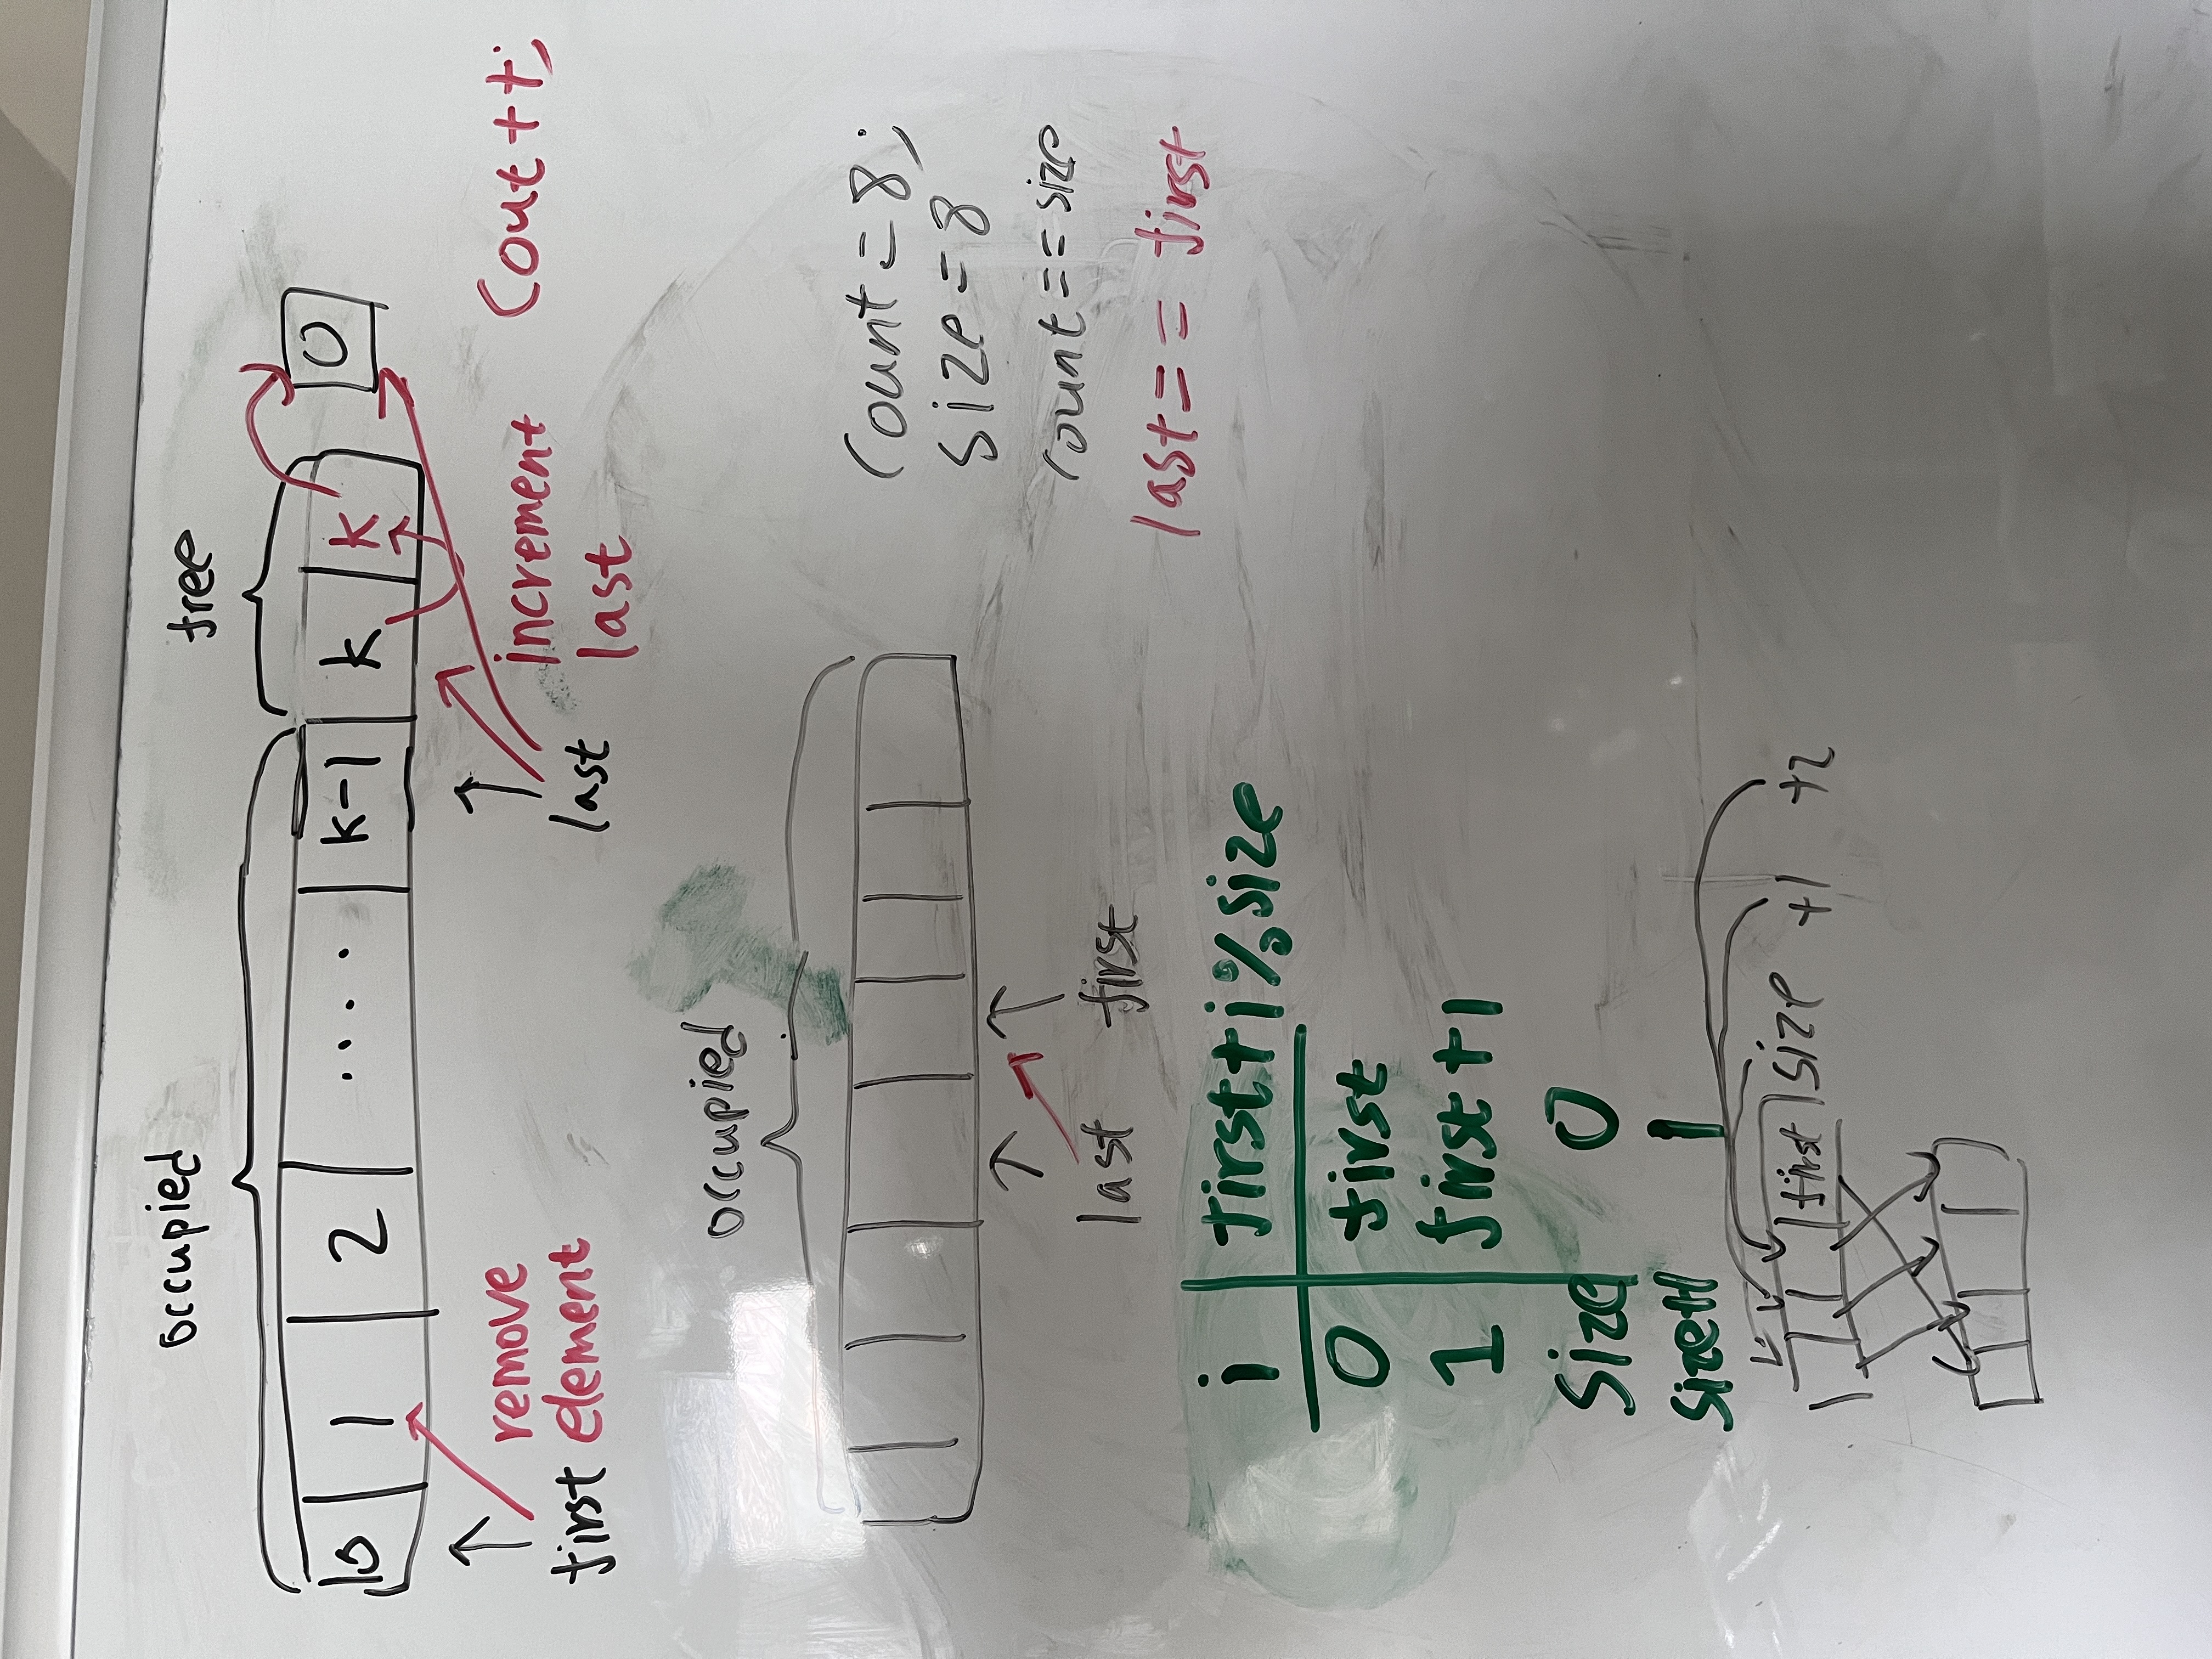 occupied
free
0 1 2 .... k-1 k k 0
first remove element
last increment last
Cout++;
occupied
count=8;
size=8
count==size
last first
last== first
i first+i%size
0 first
1 first+1
size 0
size+1 1
first size +1 +2